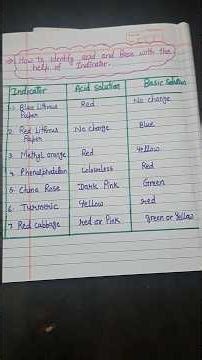 → How to identify acid and Base with the
help of Indicator.
Indicator Acid solution Basic Solution
1. Blue Litmus Paper Red No change
2. Red Litmus Paper No change Blue
3. Methyl orange Red Yellow
4. Phenolphthalein Colourless Red
5. China Rose Dark Pink Green
6. Turmeric Yellow red
7. Red cabbage red or Pink green or Yellow